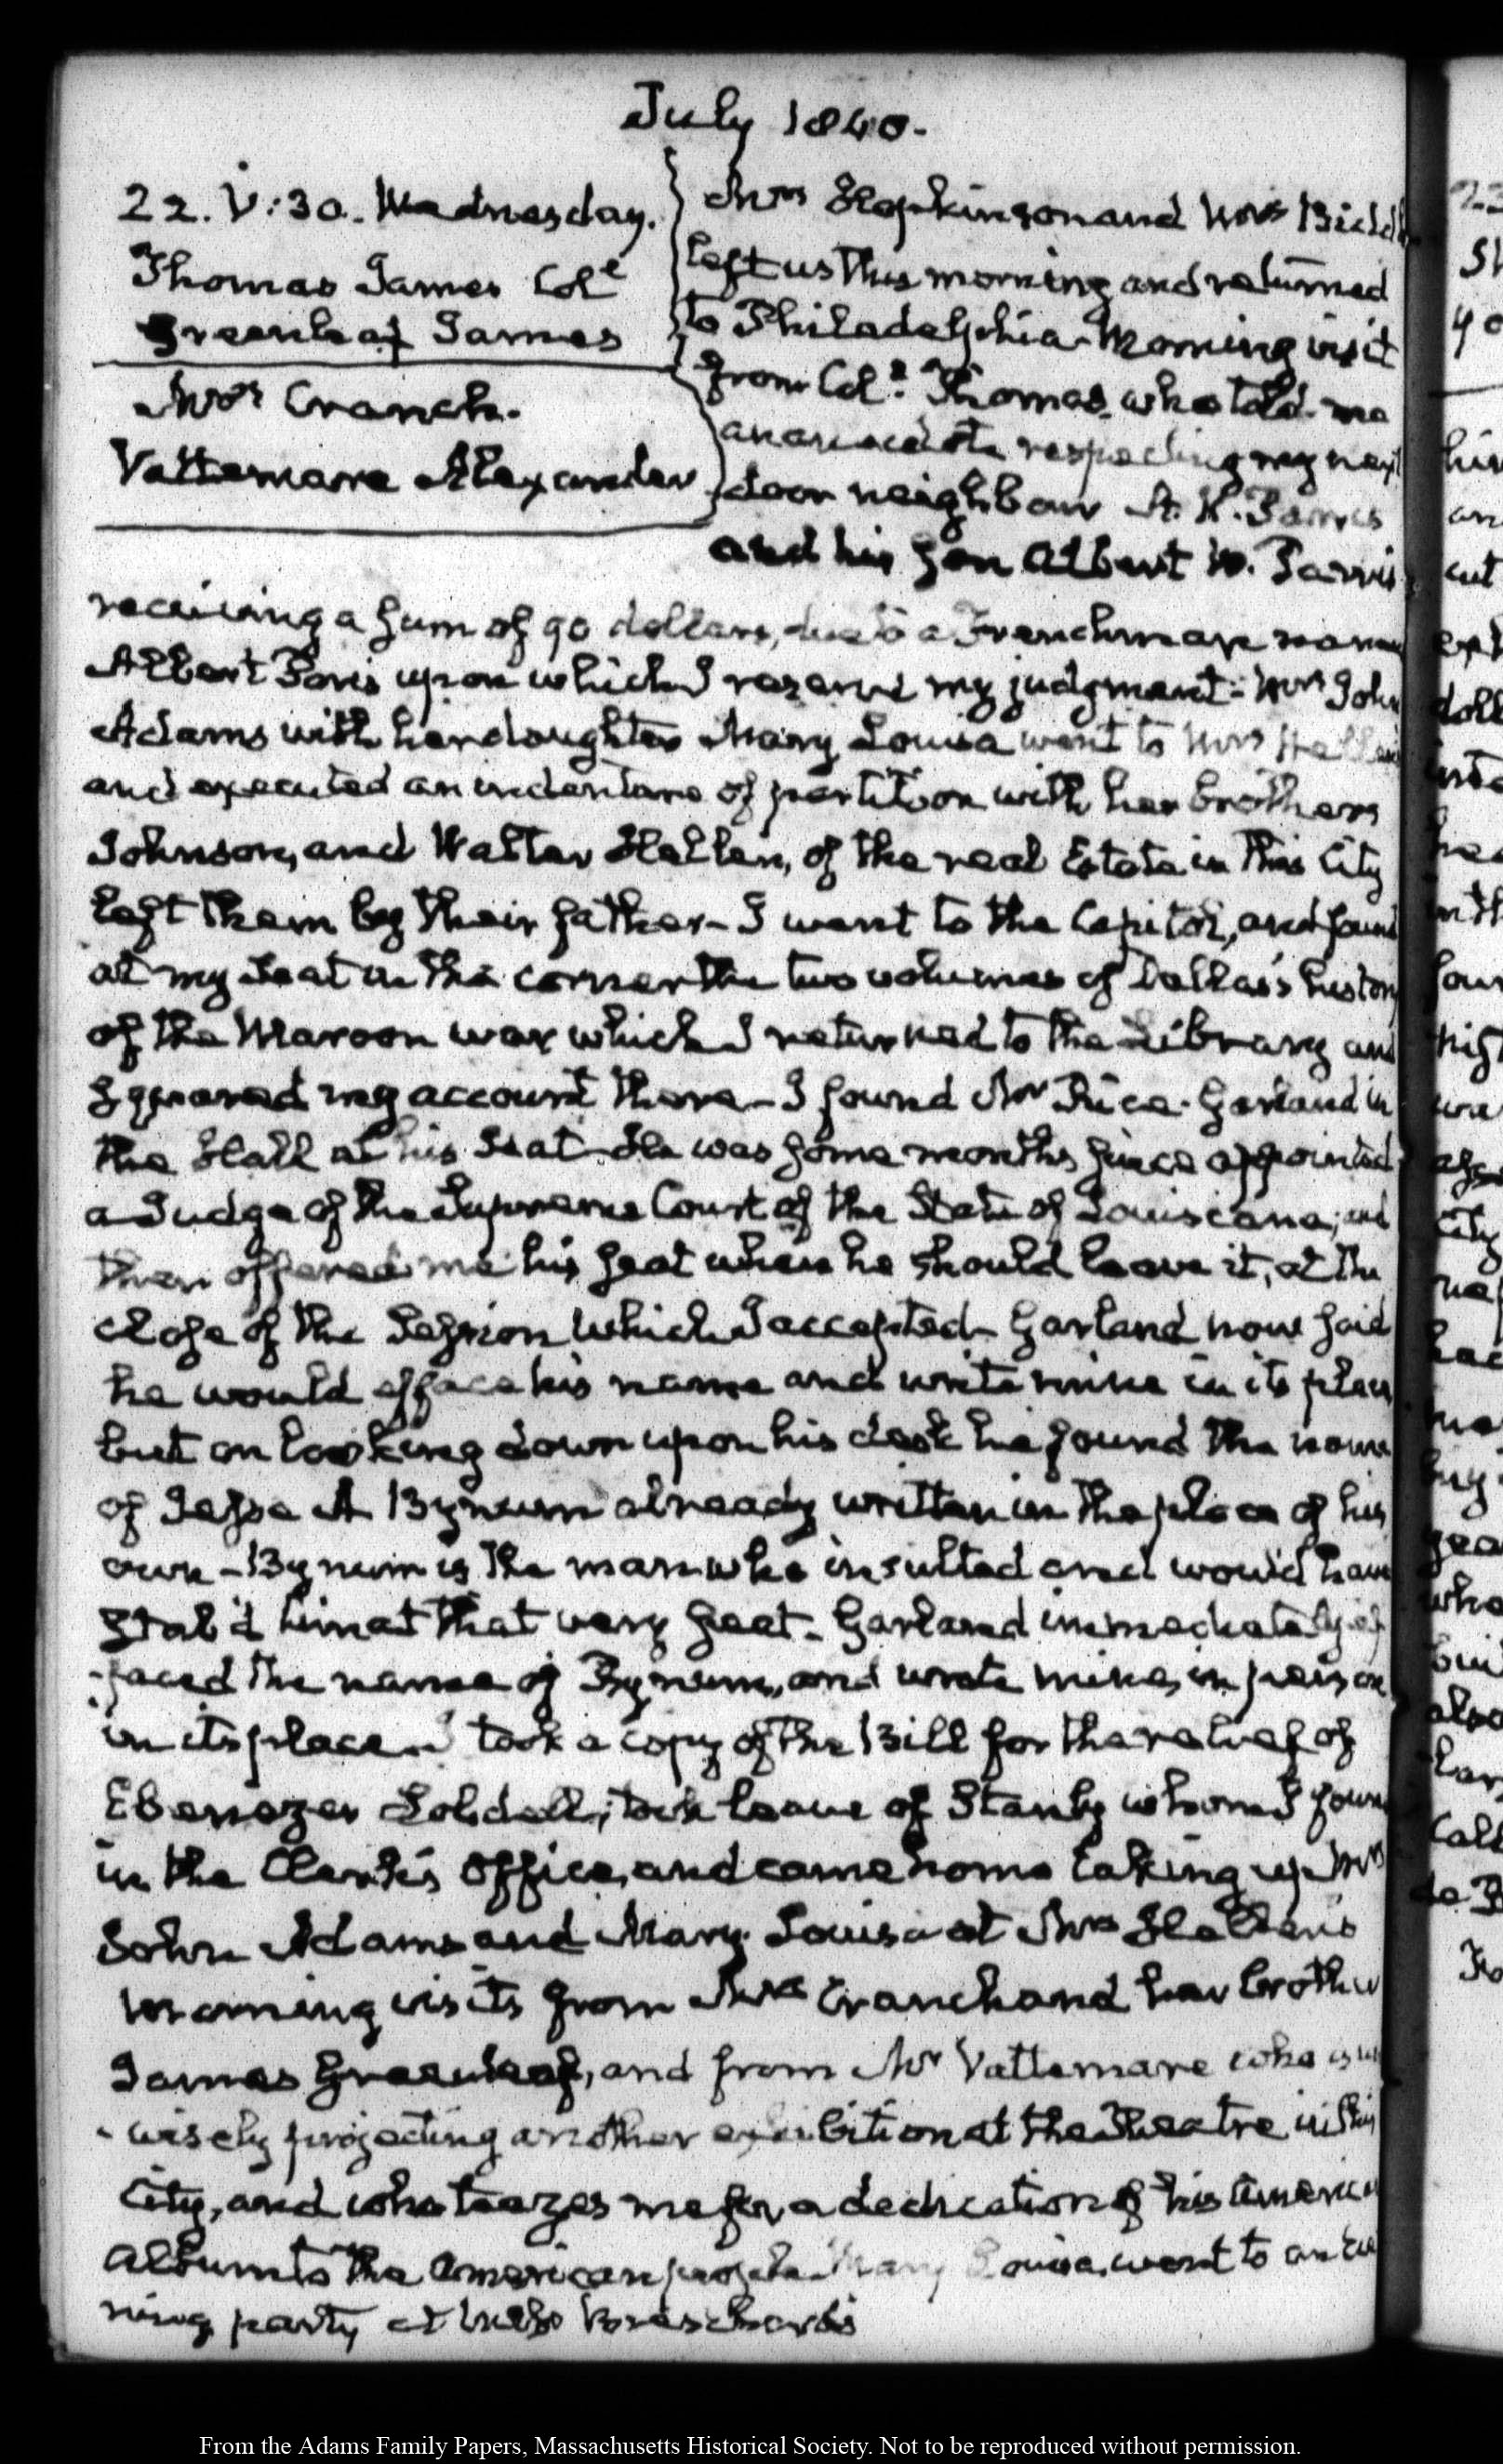 July 1840.
22. V:30. Wednesday.
Thomas James Col.
Greenleaf James
Mrs Cranch.
Vattemare Alexander
Mrs Hopkinson and Mrs Biddle
left us this morning and returned
to Philadelphia. Morning visit
from Col. Thomas, who told me
an anecdote respecting my next
door neighbour
and his Son Albert
receiving a sum of 90 dollars, due to a Frenchman
Albert upon which I reserve my judgment. Mrs John
Adams with her daughter Mary Louisa went to Mrs Hellen
and executed an indenture of partition with her brothers
Johnson, and Walter Hellen, of the real Estate in this City
left them by their father. I went to the Capitol, and found
at my Seat in the corner the two volumes of Dallas's history
of the Maroon war which I returned to the Library and
squared my account there. I found Mr Rice Garland in
the Hall at his Seat. He was some months since appointed
a Judge of the Supreme Court of the State of Louisiana; and
then offered me his seat when he should leave it, at the
close of the Session which I accepted. Garland now said
he would efface his name and write mine in its place
but on looking down upon his desk he found the name
of Jesse A Bynum already written in the place of his
own. Bynum is the man who insulted and would have
stab'd him at that very seat. Garland immediately ef
-faced the name of Bynum, and wrote mine,
in its place. I took a copy of the Bill for the relief of
Ebenezer Lobdell; took leave of Stanly whom I found
in the Clerk's Office, and came home taking up Mrs
John Adams and Mary Louisa at Mrs Hellen's
Morning visits from Mrs Cranch and her brother
James Greenleaf, and from Mr Vattemare who is un
-wisely projecting another exhibition at the Theatre in this
City, and who teazes me for a dedication of his American
Album to the American people. Mary Louisa went to an eve
ning party at
From the Adams Family Papers, Massachusetts Historical Society. Not to be reproduced without permission.